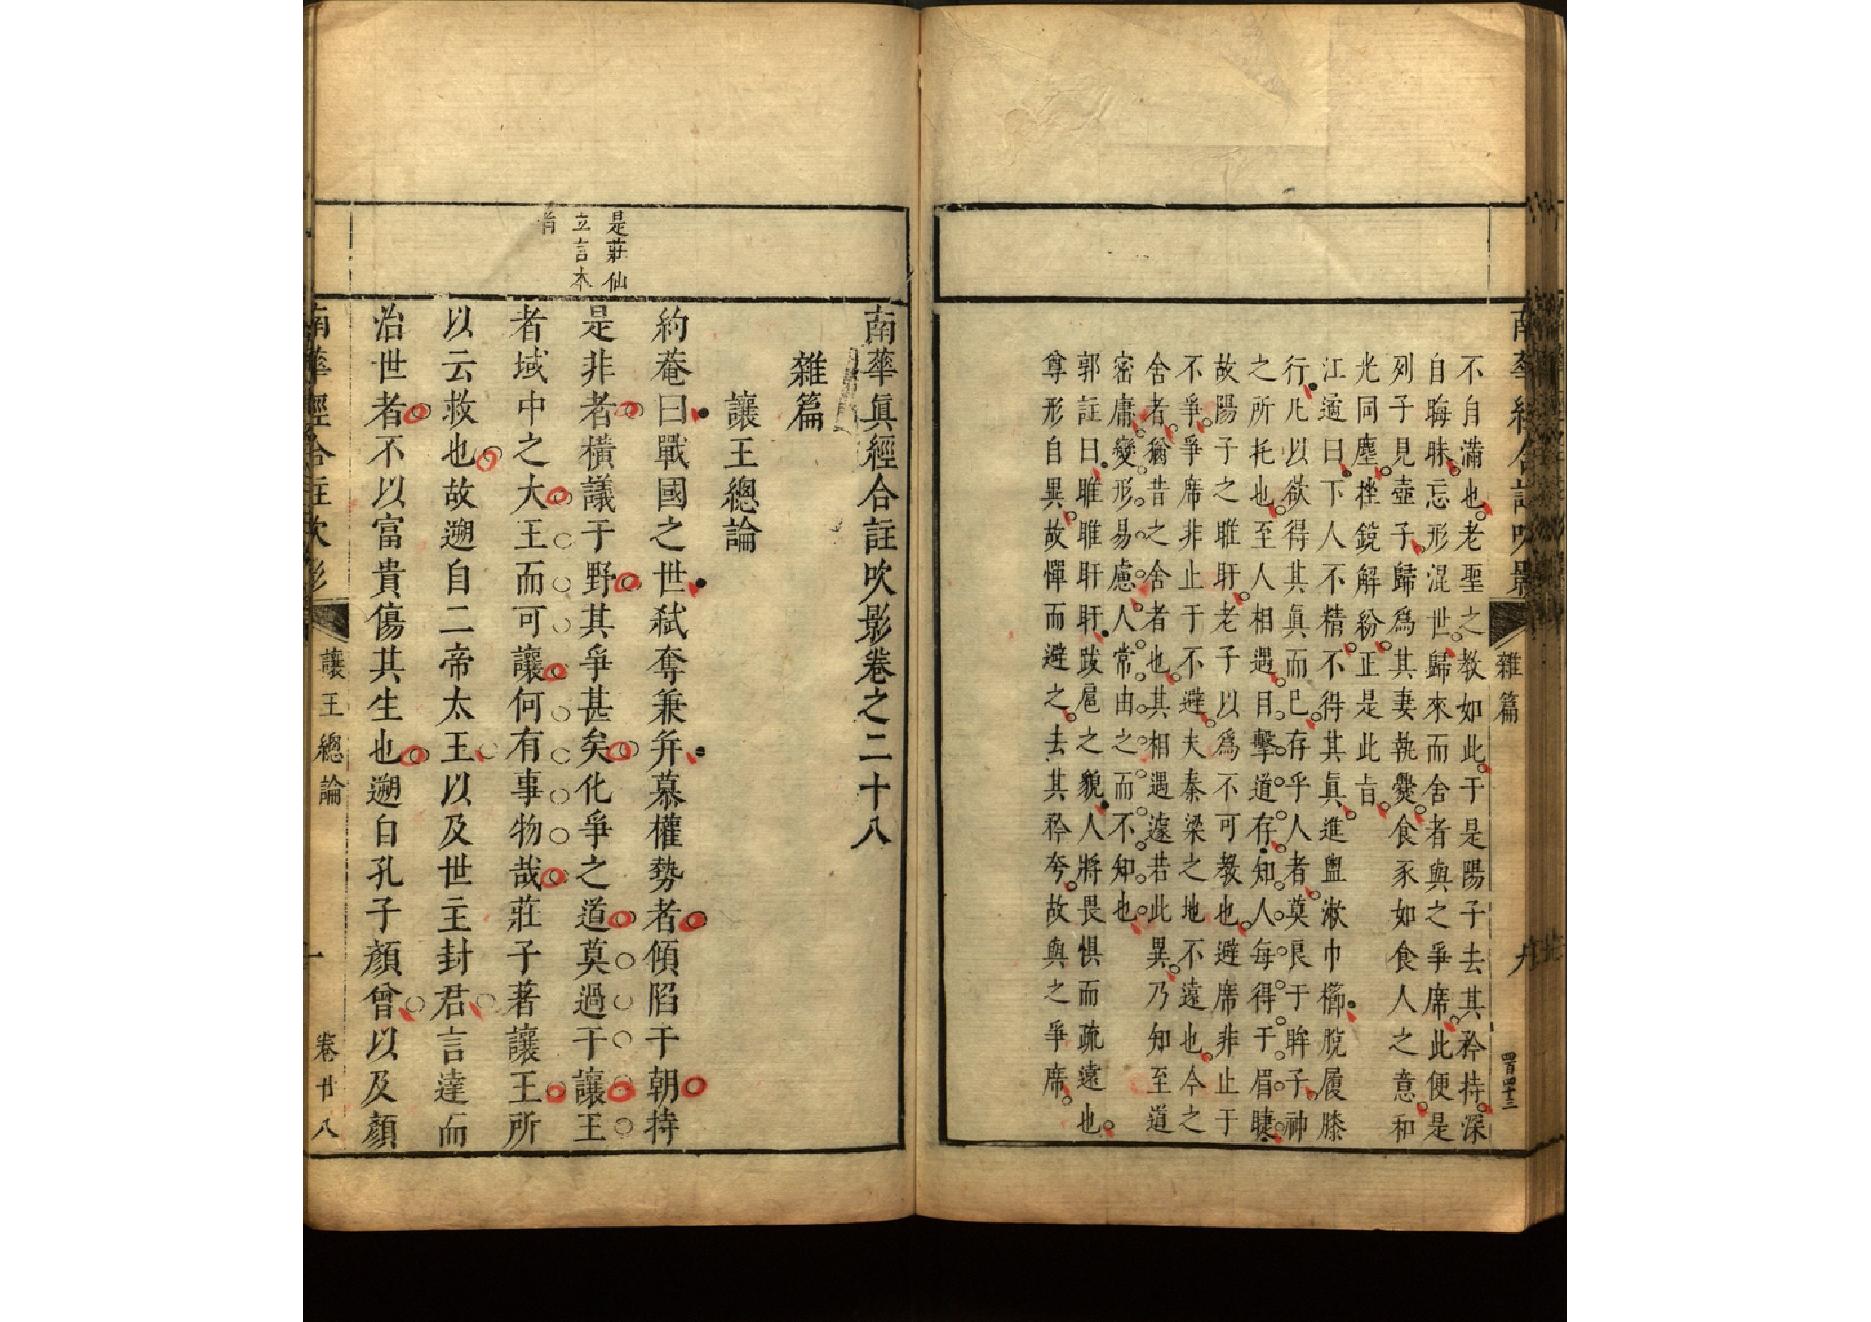 南華經合註吹影
雜篇
四百四十三
不自滿也老聖之教如此于是陽子去其矜持深
自晦昧忘形混世歸來而舍者與之爭席此便是
列子見壺子歸爲其妻執爨食豕如食人之意和
光同塵挫銳解紛正是此旨
江遹曰下人不精不得其眞進盥漱巾櫛脫履膝
行凡以欲得其眞而已存乎人者莫良于眸子神
之所托也至人相遇目擊道存知人每得于眉睫
故陽子之睢盱老子以爲不可教也避席非止于
不爭爭席非止于不避夫秦梁之地不遠也今之
舍者猶昔之舍者也其相遇遽若此異乃知至道
密庸變形易慮人常由之而不知也
郭註曰睢睢盱盱跋扈之貌人將畏惧而疏遠也
尊形自異故憚而避之去其矜夸故與之爭席
南華眞經合註吹影卷之二十八
雜篇
讓王總論
約菴曰戰國之世弑奪兼并慕權勢者傾陷于朝持
是非者橫議于野其爭甚矣化爭之道莫過于讓王
者域中之大王而可讓何有事物哉莊子著讓王所
以云救也故遡自二帝太王以及世主封君言達而
治世者不以富貴傷其生也遡自孔子顏曾以及顏
是莊仙
立言本
南華經合註吹影
讓王總論
一
卷廿八